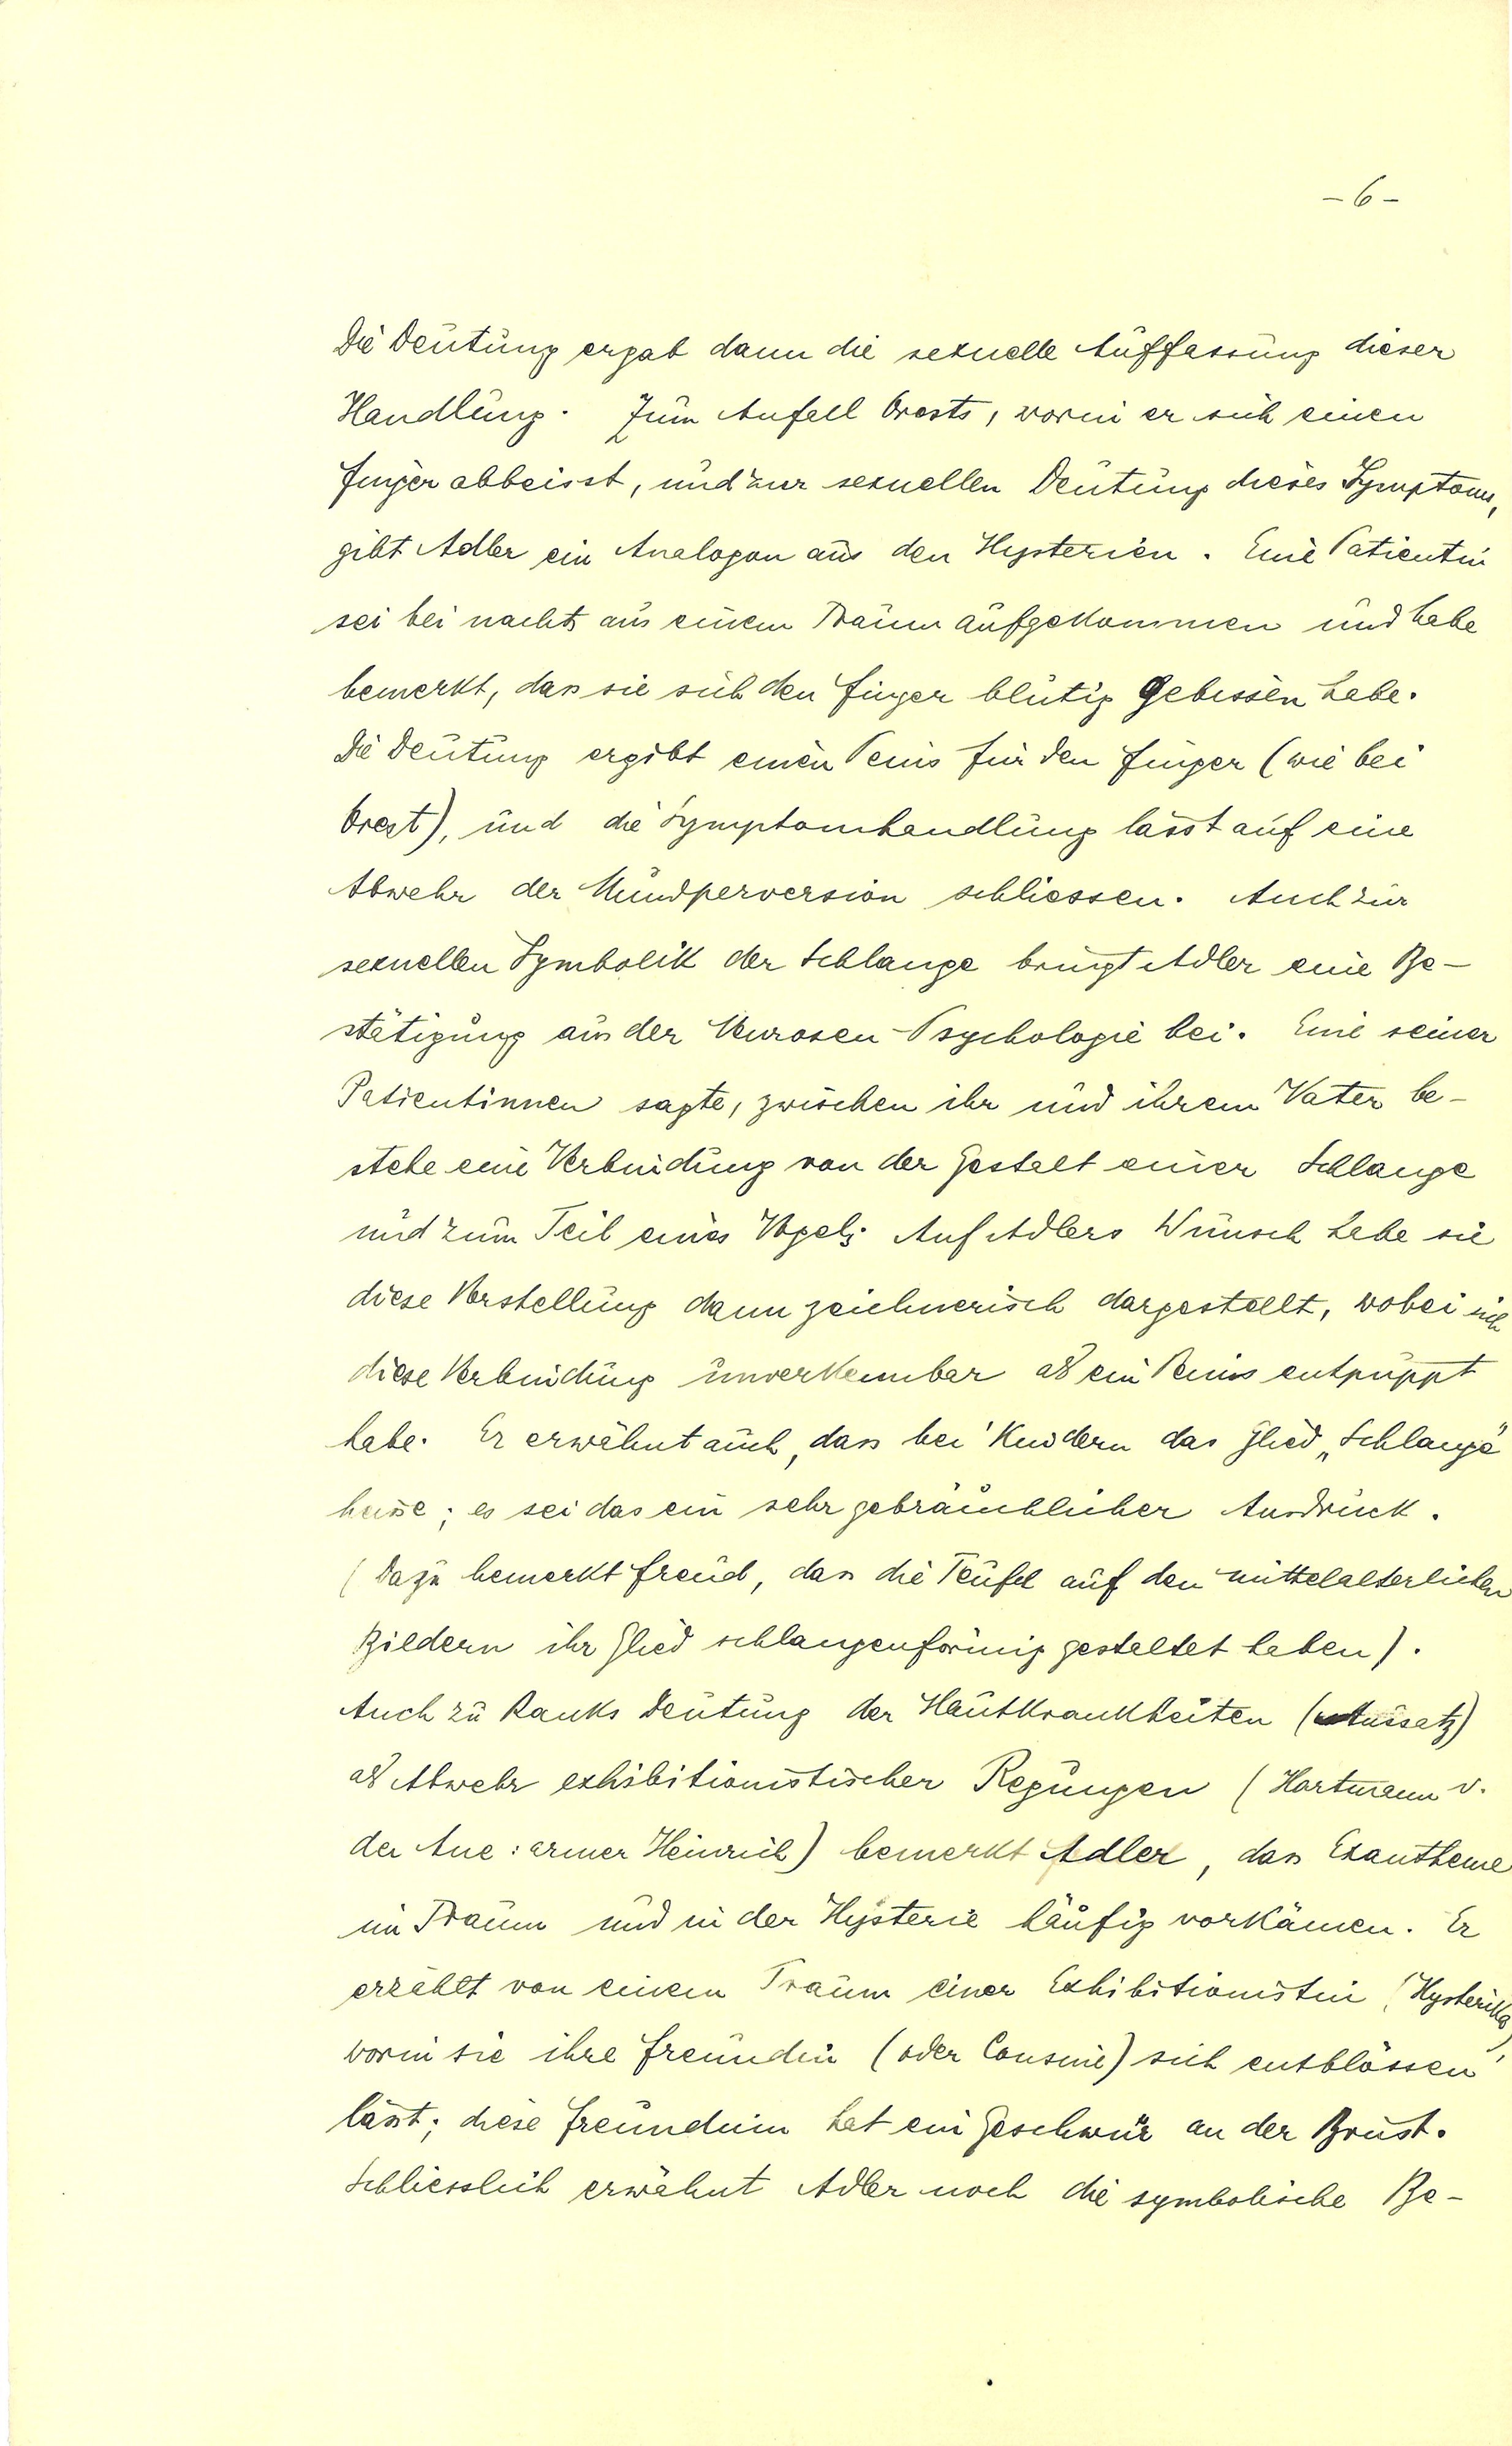 - 6 -
Die Deutung ergab dann die sexuelle Auffassung dieser
Handlung. Zum Anfall Orests, worin er sich einen
Finger abbeisst, und zur sexuellen Deutung dieses Symptoms,
gibt Adler ein Analogon aus den Hysterien. Eine Patientin
sei bei nachts aus einem Traum aufgekommen und habe
bemerkt, dass sie sich den Finger blutig gebissen habe.
Die Deutung ergibt einen Penis für den Finger (wie bei
Orest), und die Symptomhandlung lässt auf eine
Abwehr der Mundperversion schliessen. Auch zur
sexuellen Symbolik der Schlange bringt Adler eine Be-
stätigung aus der Neurosen-Psychologie bei. Eine seiner
Patientinnen sagte, zwischen ihr und ihrem Vater be-
stehe eine Verbindung von der Gestalt einer Schlange
und zum Teil eines Vogels. Auf Adlers Wunsch habe sie
diese Vorstellung dann zeichnerisch dargestellt, wobei sich
diese Verbindung unverkennbar als ein Penis entpuppt
habe. Er erwähnt auch, dass bei Kindern das Glied „Schlange"
heisse; es sei das ein sehr gebräuchlicher Ausdruck.
(Dazu bemerkt Freud, dass die Teufel auf den mittelalterlichen
Bildern ihr Glied schlangenförmig gestaltet haben).
Auch zu Ranks Deutung der Hautkrankheiten (Aussatz)
als Abwehr exhibitionistischer Regungen (Hartmann v.
der Aue: armer Heinrich) bemerkt Adler, dass Exantheme
im Traum und in der Hysterie häufig vorkämen. Er
erzählt von einem Traum einer Exhibitionistin (Hysterika),
worin sie ihre Freundin (oder Cousine) sich entblössen
lässt; diese Freundin hat ein Geschwür an der Brust.
Schliesslich erwähnt Adler noch die symbolische Be-